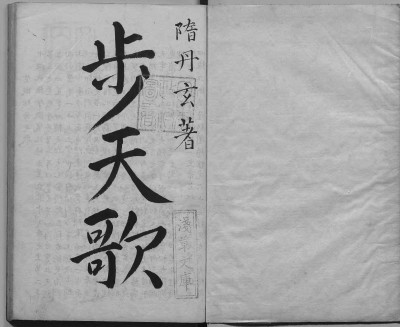 隋丹玄著
步天歌
淺草文庫